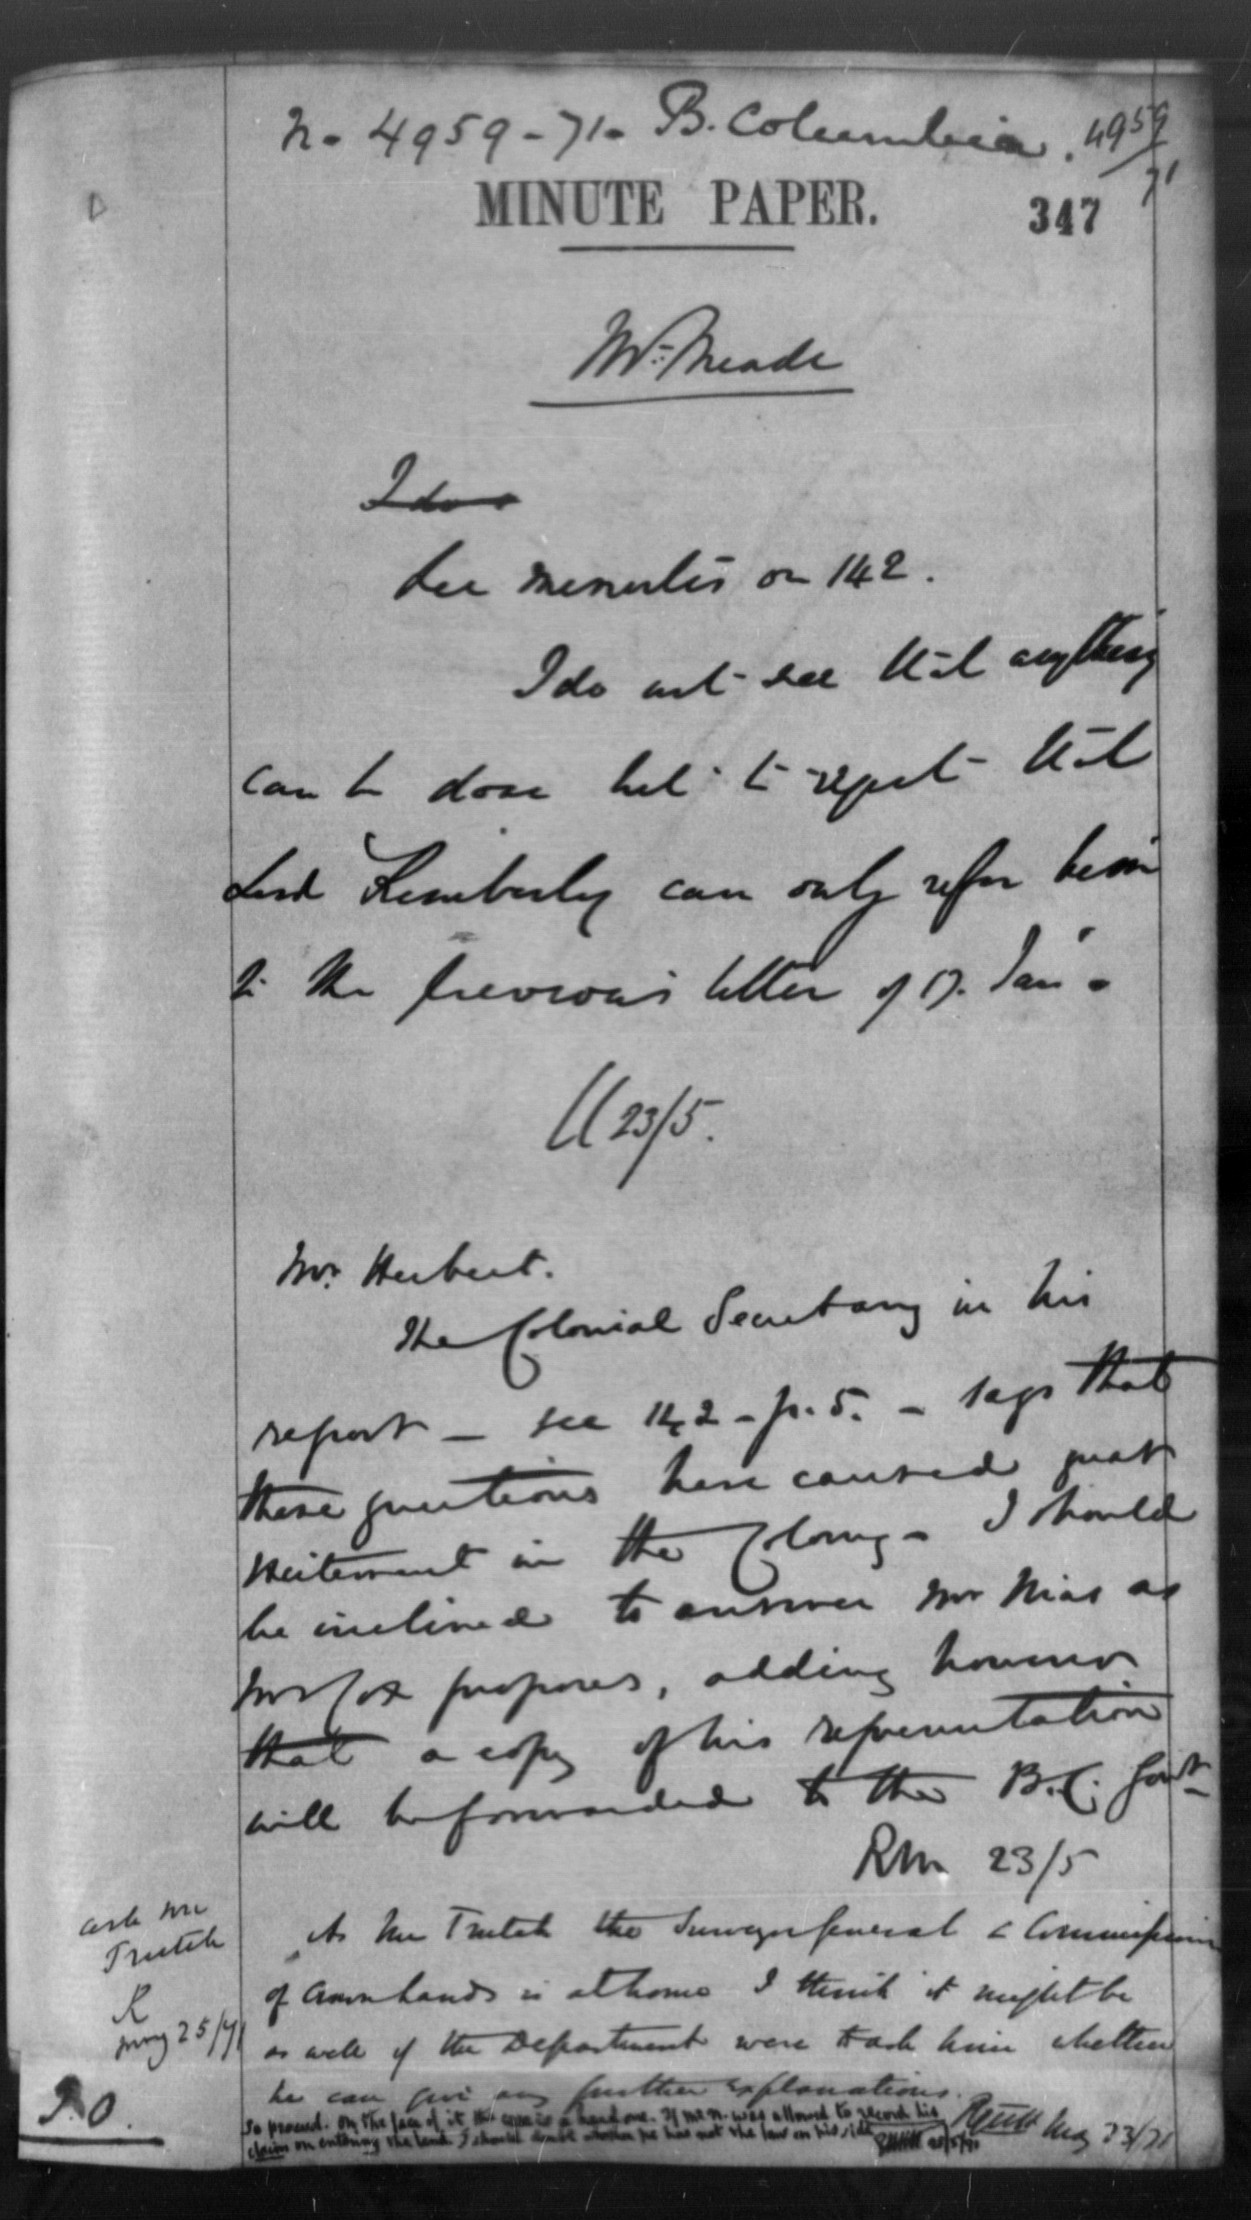 No 4959-71. B. Columbia. 4959/71
MINUTE PAPER.
347
Mr. Meade
I do
See minutes on 142.
I do not see that anything
can be done but to repeat that
Lord Kimberley can only refer him
to the previous letter of 17. Jany.
CC 23/5.
Mr. Herbert.
The Colonial Secretary in his
report – see 142 – p. 5. – says that
these questions have caused great
excitement in the Colony – I should
be inclined to answer Mr Nias as
Mr Cox proposes, adding however
that a copy of his representation
will be forwarded to the B.C. Govt
RM 23/5
As Mr Trutch the Surveyor General & Commissioner
of Crown Lands is at home I think it might be
as well if the Department were to ask him whether
he can give any further explanations.
RGWH May 23/71
ask Mr
Trutch
K
May 25/71
So proceed. On the face of it the case is a hard one. If Mr. N. was allowed to record his
claim on entering the land I should doubt whether he has not the law on his side
25/5/71
P.O.